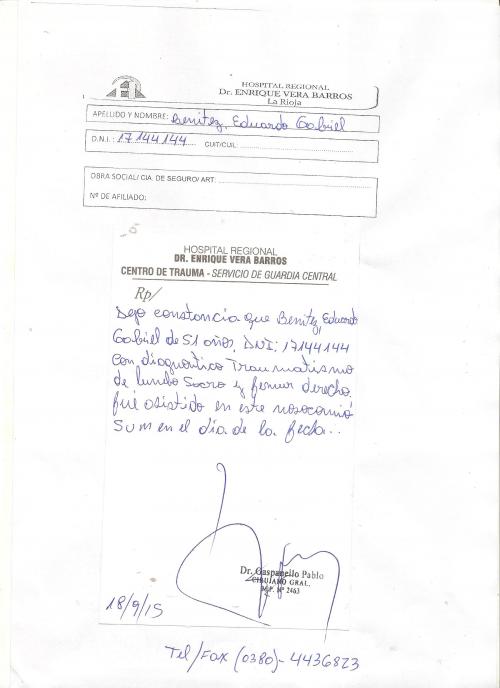 HOSPITAL REGIONAL
Dr. ENRIQUE VERA BARROS
La Rioja
APELLIDO Y NOMBRE: Benitez, Eduardo Gabriel
D.N.I.: 17144144 CUIT/CUIL:
OBRA SOCIAL/ CIA. DE SEGURO/ ART:
Nº DE AFILIADO:
HOSPITAL REGIONAL
DR. ENRIQUE VERA BARROS
CENTRO DE TRAUMA - SERVICIO DE GUARDIA CENTRAL
Rp/
Dejo constancia que Benitez, Eduardo
Gabriel de 51 años, DNI: 17144144
Con diagnóstico Traumatismo
de lumbo Sacro y femur derecho,
fué asistido en este nosocomio
en el día de la fecha..
Dr. Gaspanello Pablo
CIRUJANO GRAL.
M.P. Nº 2463
18/9/15
Tel/Fax (0380)- 4436823